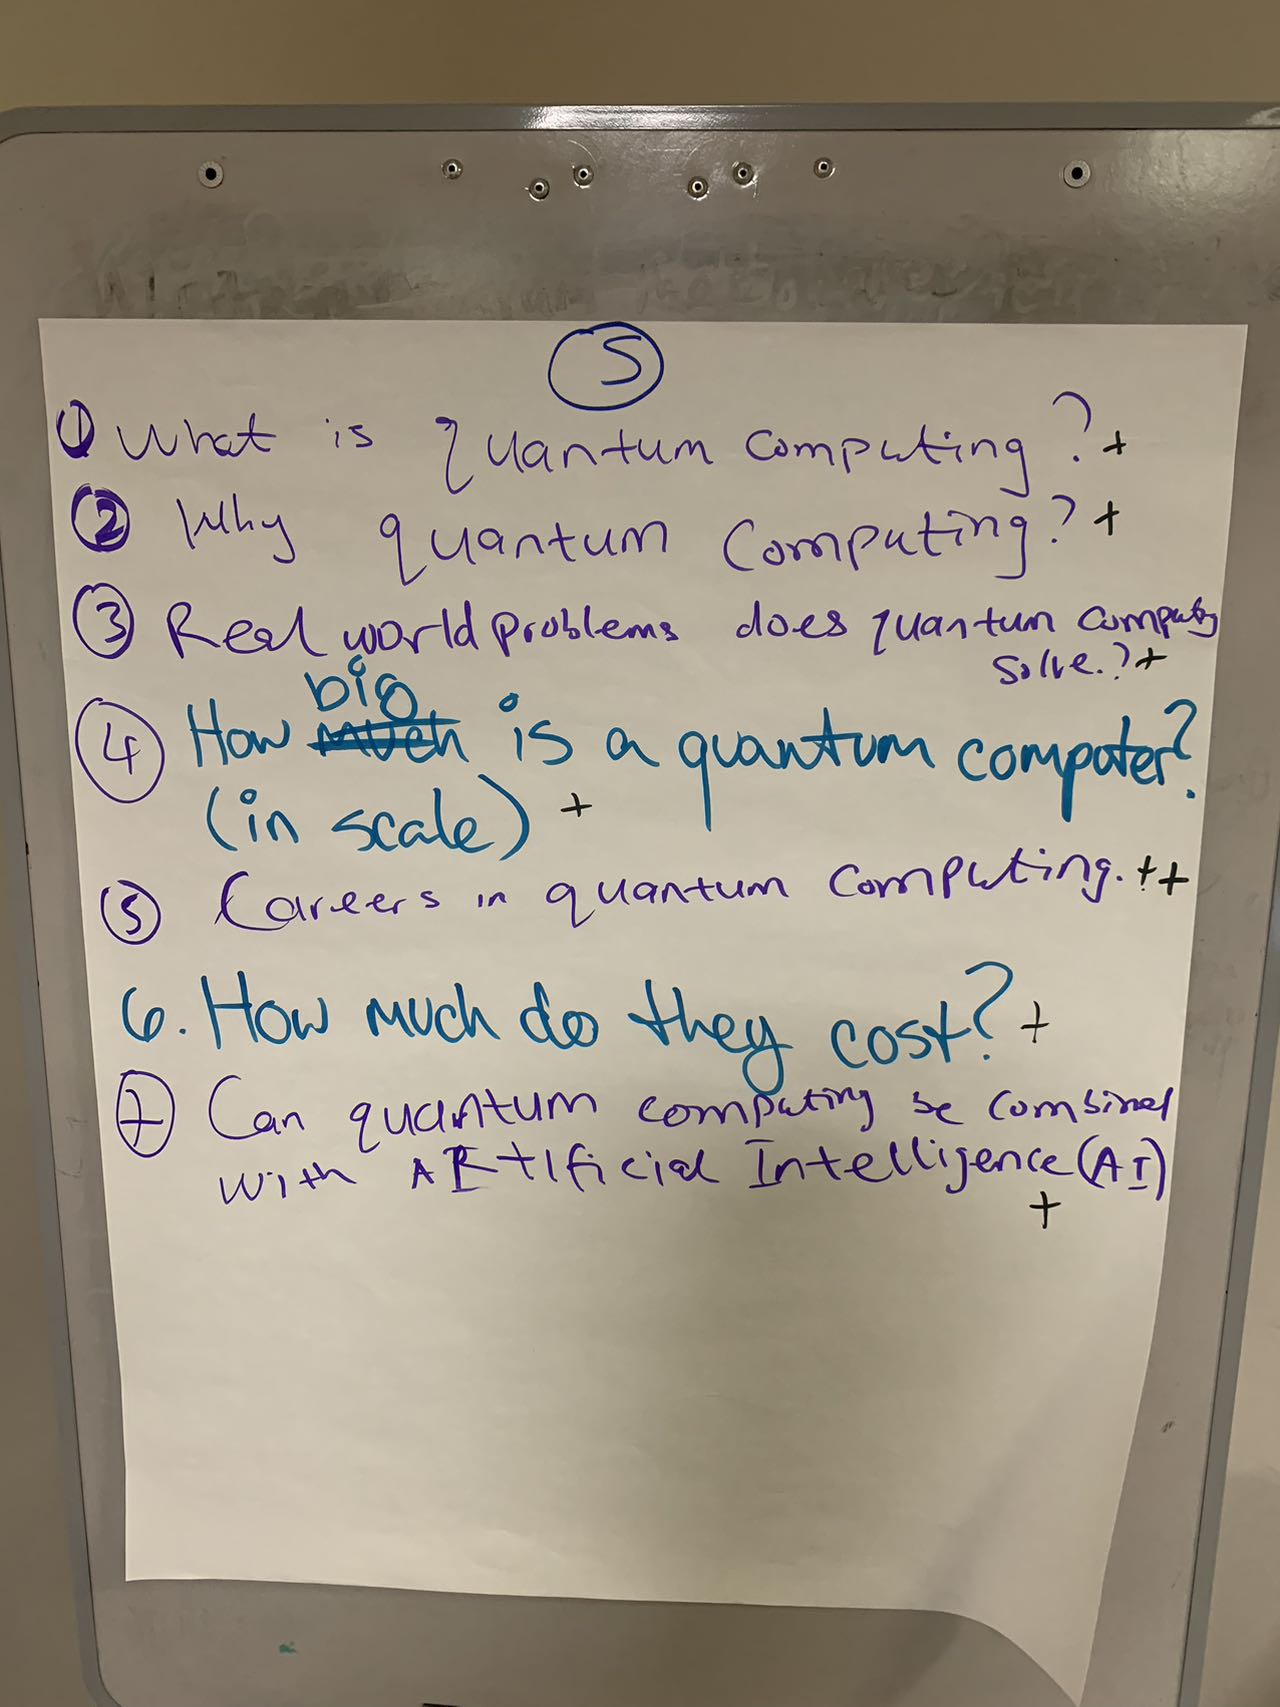 S
① What is quantum computing? +
② Why quantum Computing? +
③ Real world problems does quantum computing
solve.? +
big
④ How much is a quantum computer?
(in scale) +
⑤ Careers in quantum computing. ++
6. How much do they cost? +
⑦ Can quantum computing be combined
with ARtificial Intelligence (AI)
+